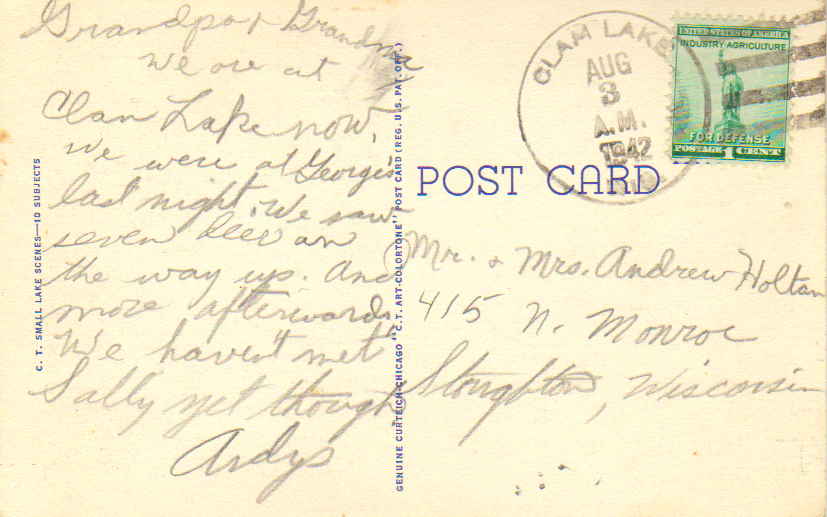 Grandpa & Grandma
We are at
Clam Lake now.
We were at George's
last night. We saw
seven deer on
the way up. And
more afterwards.
We haven't met
Sally yet though
Ardys
C. T. SMALL LAKE SCENES—10 SUBJECTS
GENUINE CURTEICH-CHICAGO "C.T. ART-COLORTONE" POST CARD (REG. U.S. PAT. OFF.)
CLAM LAKE
AUG
3
A.M.
1942
WIS.
UNITED STATES OF AMERICA
INDUSTRY AGRICULTURE
FOR DEFENSE
POSTAGE 1 CENT
POST CARD
Mr. & Mrs. Andrew Holtan
415 N. Monroe
Stoughton, Wisconsin